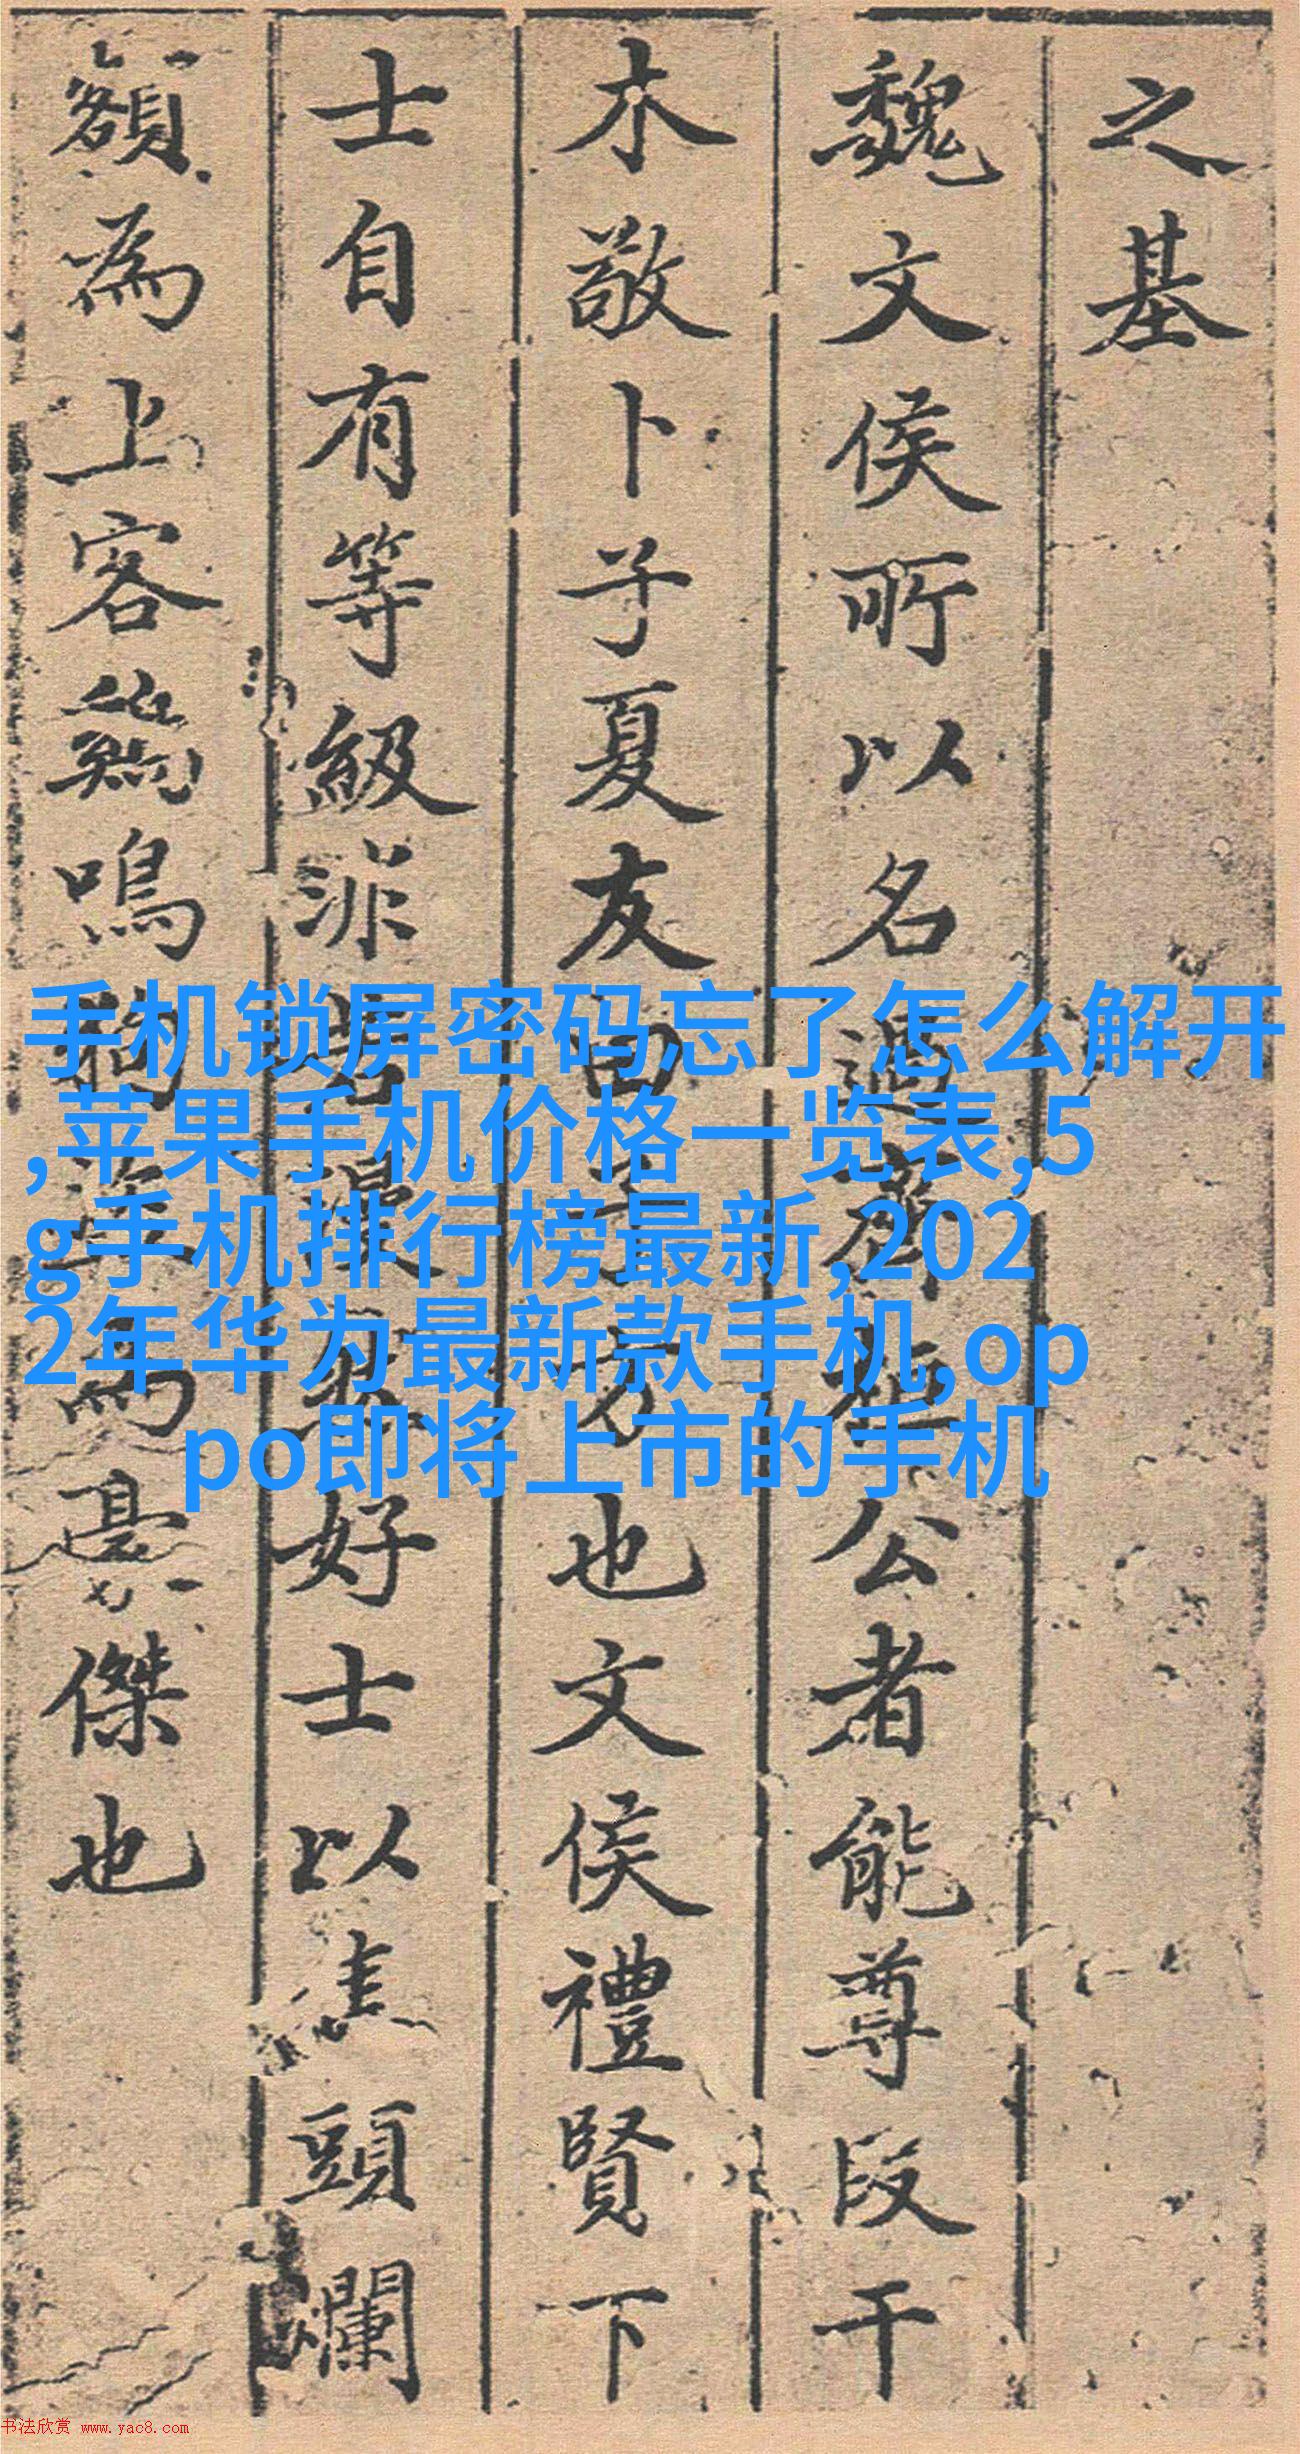 之基
魏文侯所以名過齊桓公者能尊段干
木敬卜子夏友田子方也文侯禮賢下
士自有等級非若好士以焦頭爛
額為上客鷄鳴狗盜為豪傑也
手机锁屏密码忘了怎么解开
,苹果手机价格一览表,5
g手机排行榜最新,202
2年华为最新款手机,op
po即将上市的手机
书法欣赏 www.yac8.com